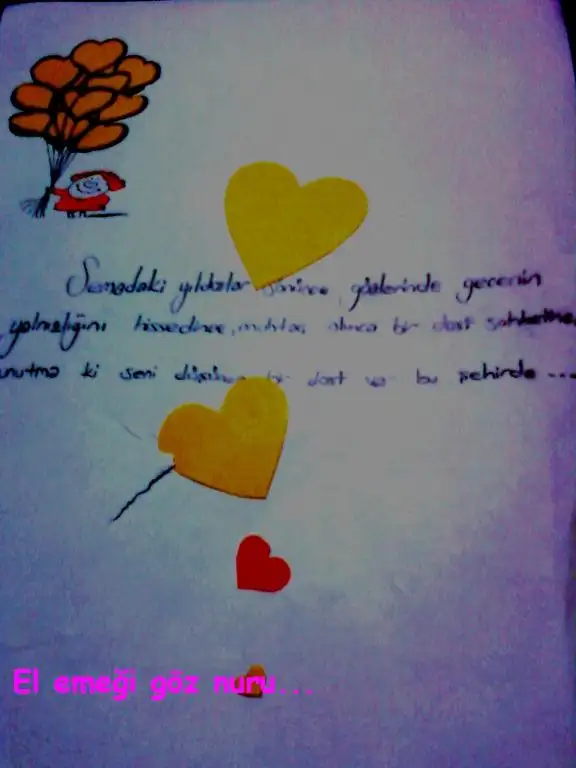 Semadaki yıldızlar sönünce, gözlerinde gecenin
yalnızlığını hissedince, muhtaç olunca bir dost sohbetine,
unutma ki seni düşünen bir dost var bu şehirde ...
El emeği göz nuru...